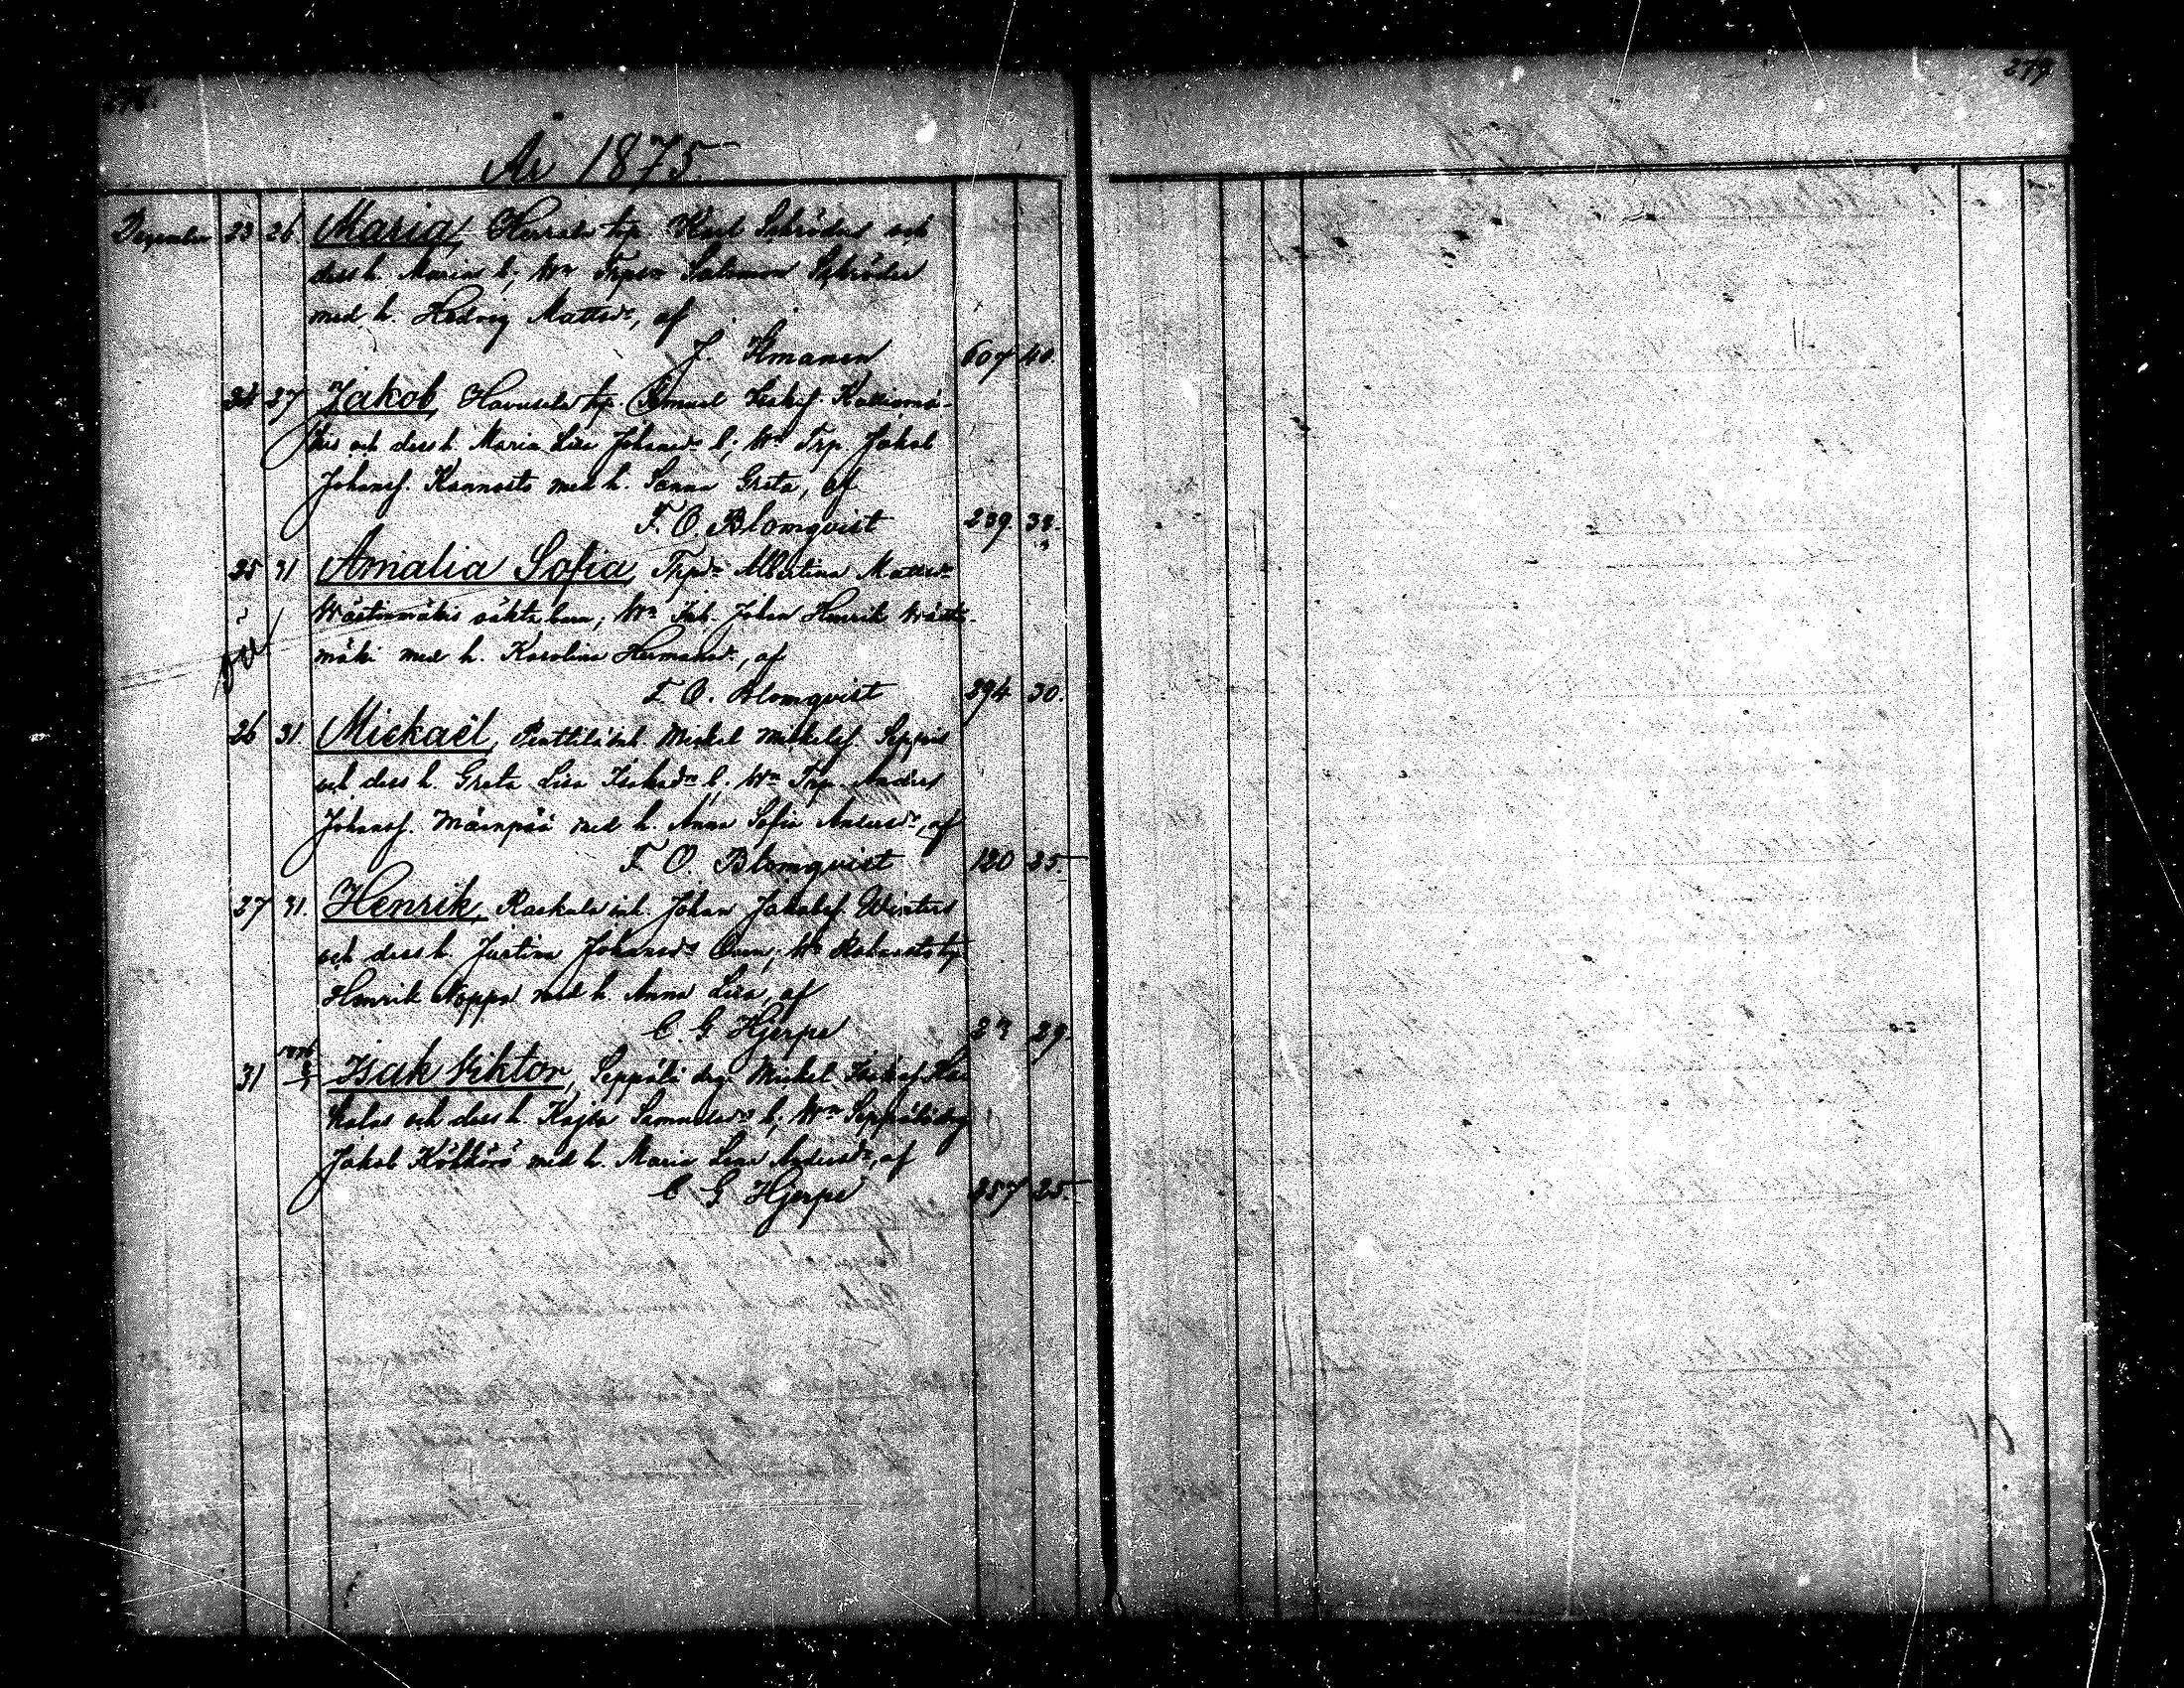 279
År 1875
December 23 26 Maria, torp. Karl Schröders och
dess h. Marias b; Wn Salomon Schröder
med h. Hedvig Mattsdr, af
J. 607 40.
24 27 Jakob, Havusela torp. Samuel Isaksf.
och dess h. Maria Lisa Johansdr b; Wn Trp. Jakob
Johansf. Kannosto med h. Sanna Greta, af
F. O. Blomqvist 239. 32.
25 31 Amalia Sofia, Albertina Mattsdr
oäkta barn; Wn Inh. Johan Henrik
mäki med h. Karolina Hermansdr, af
F. O. Blomqvist 394 30.
26 31. Mickaël, Penttilä inh. Mickel Mickelsf. Seppäs
och dess h. Greta Lisa Isaksdr b; Wn Trp. Anders
Johansf. Mäenpää med h. Anna Sofia Andersdr, af
F. O. Blomqvist 120 25.
27 31. Henrik, inh. Johan Jakobsf.
och dess h. Justina Johansdr barn; Wn
Henrik Noppa med h. Anna Lisa, af
C. G. Hjerpe 29.
1876
31 Isak Viktor, Seppälä drg. Mickel Isaksf.
och dess h. Kajsa Samuelsdr b; Wn Seppälä drg
Jakob Köhkörö med h. Maria Lena Andersdr, af
C. G. Hjerpe 357 25.